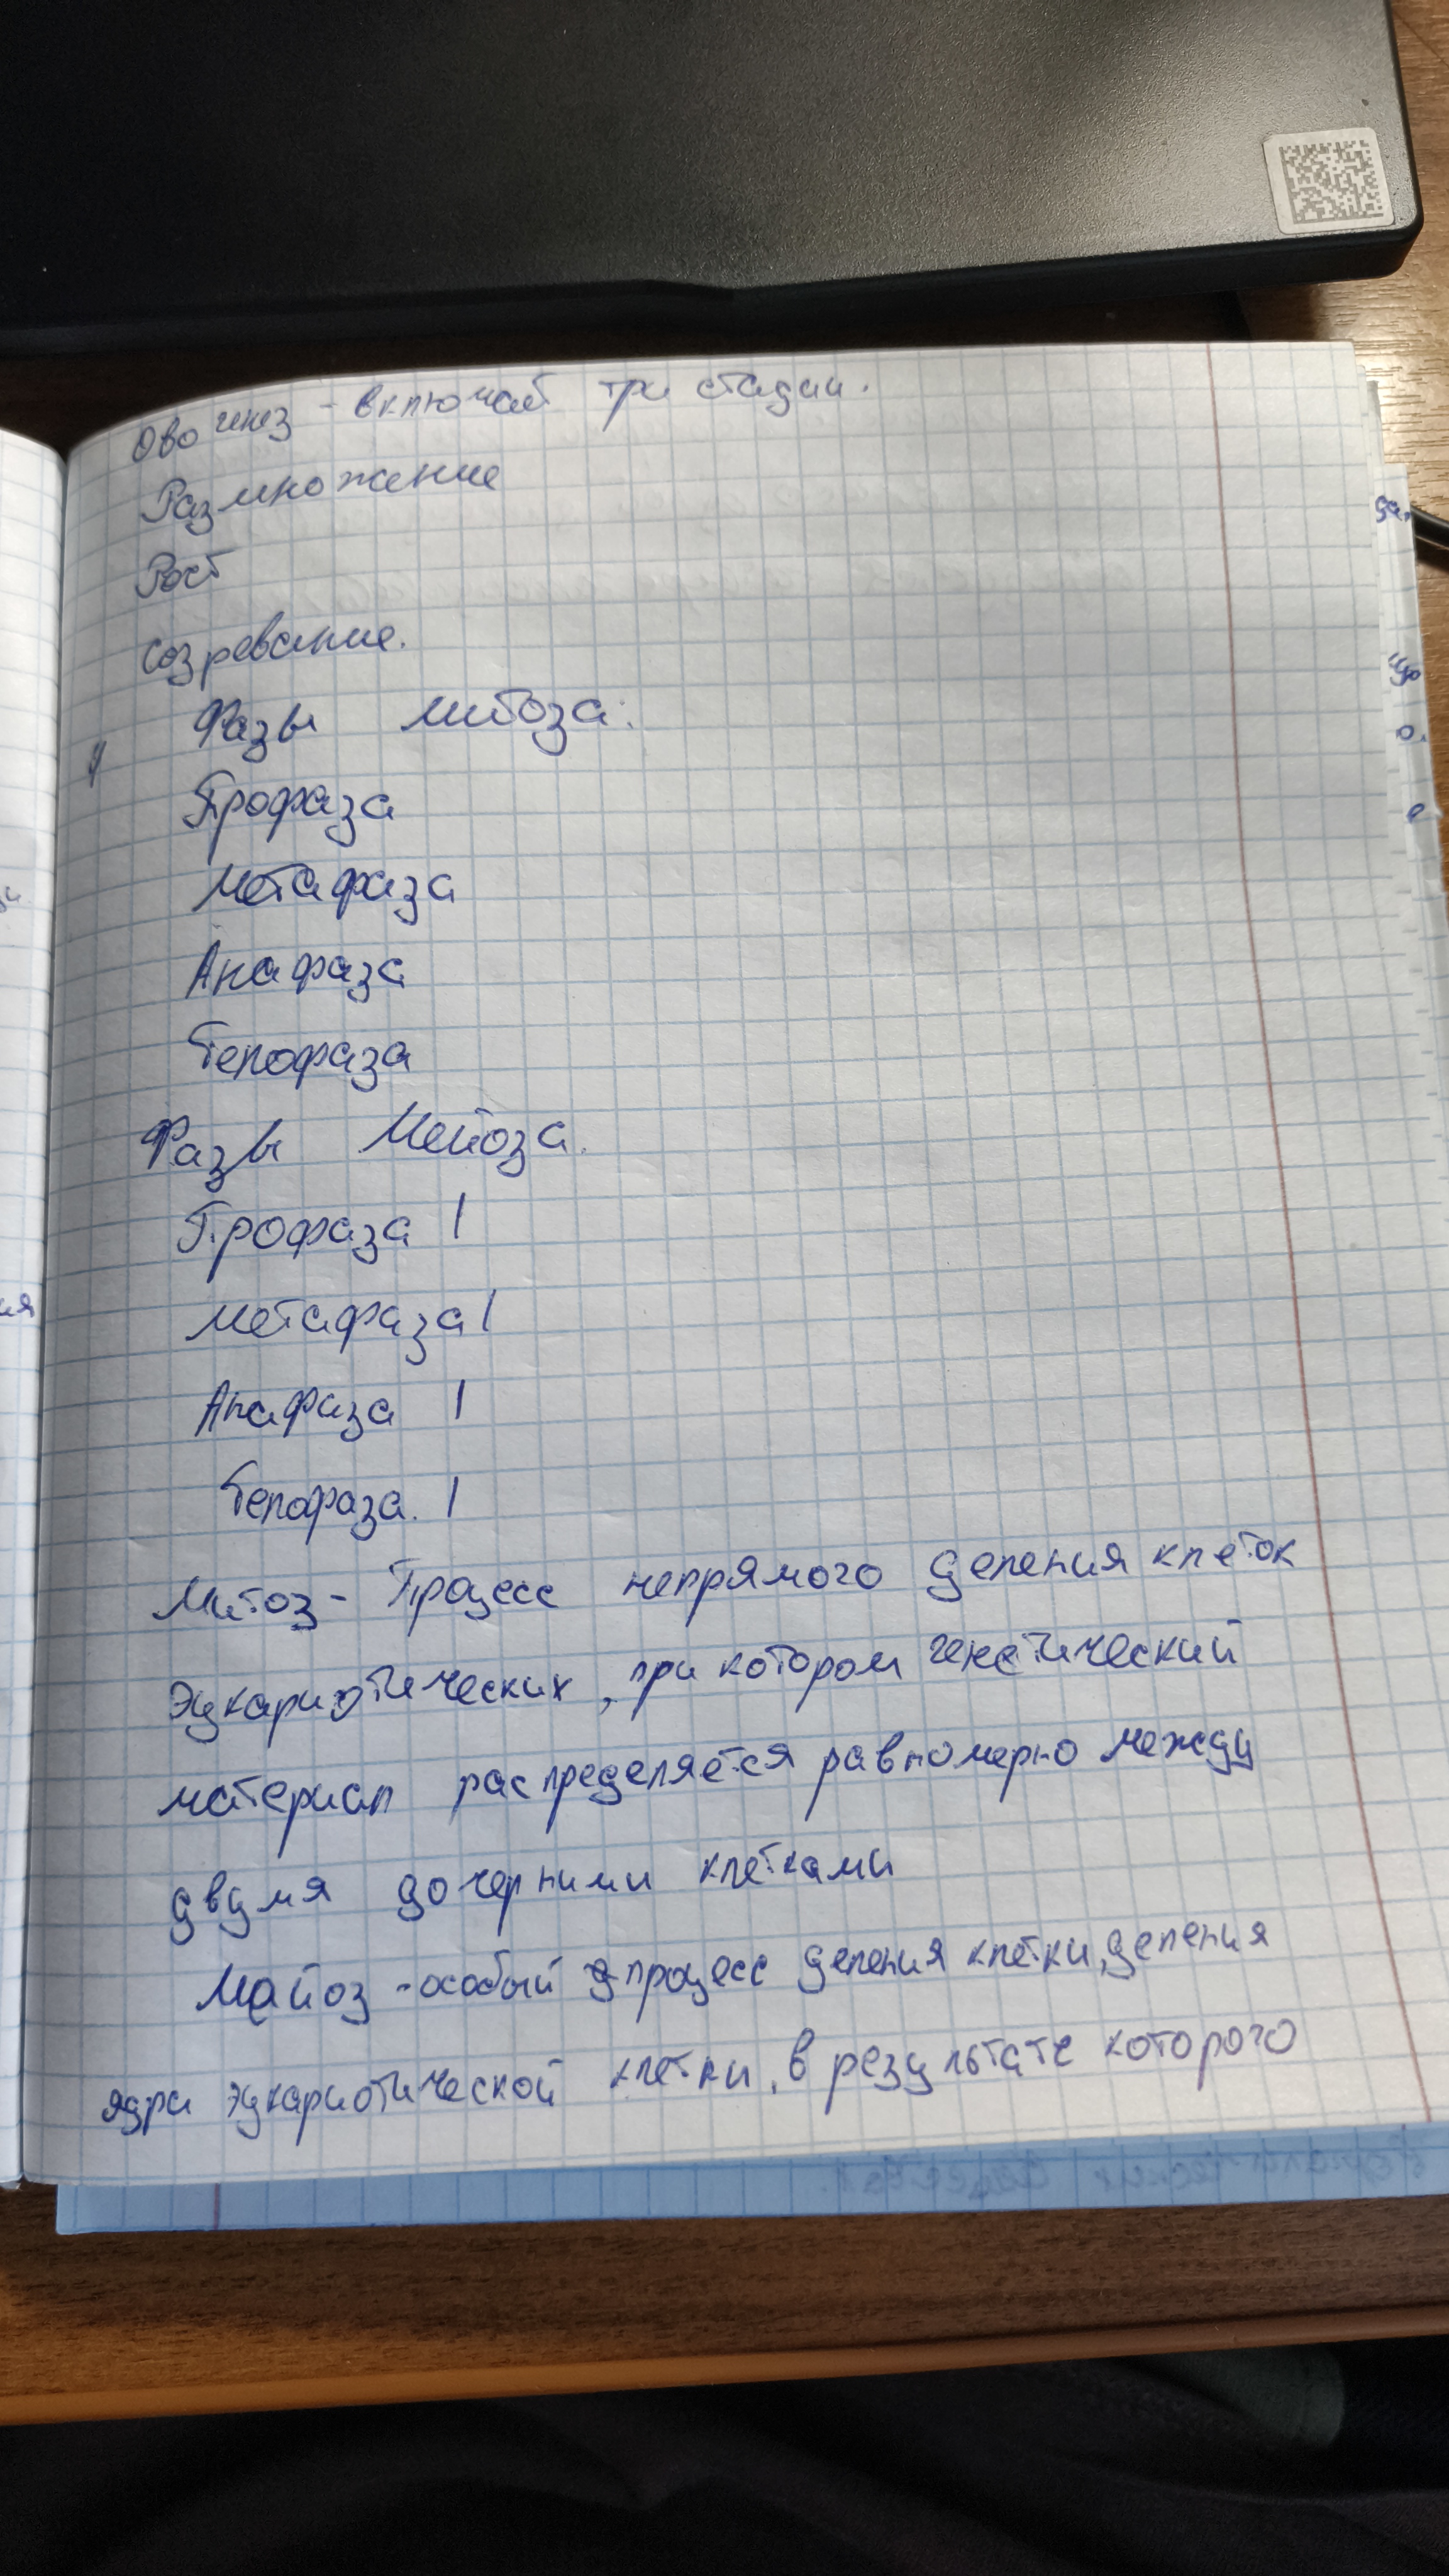 Овогенез - включает три стадии.
Размножение
Рост
Созревание.
Фазы митоза:
Профаза
Метафаза
Анафаза
Телофаза
Фазы Мейоза.
Профаза I
Метафаза I
Анафаза I
Телофаза. I
Митоз - Процесс непрямого деления клеток
эукариотических, при котором генетический
материал распределяется равномерно между
двумя дочерними клетками
Майоз - особый процесс деления клетки, деления
ядра эукариотической клетки, в результате которого